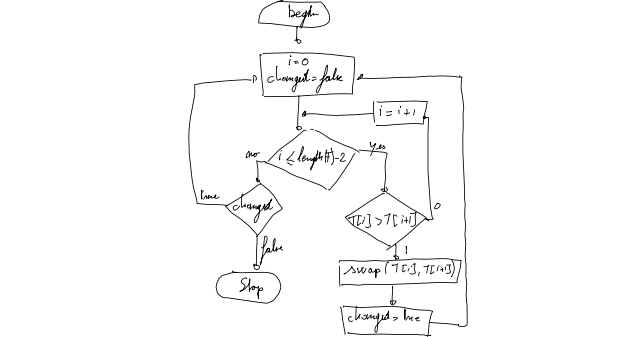 begin
i=0
changed=false
i=i+1
i ≤ length(T)-2
no
yes
true
changed
T[i]>T[i+1]
0
false
1
swap(T[i],T[i+1])
Stop
changed=true